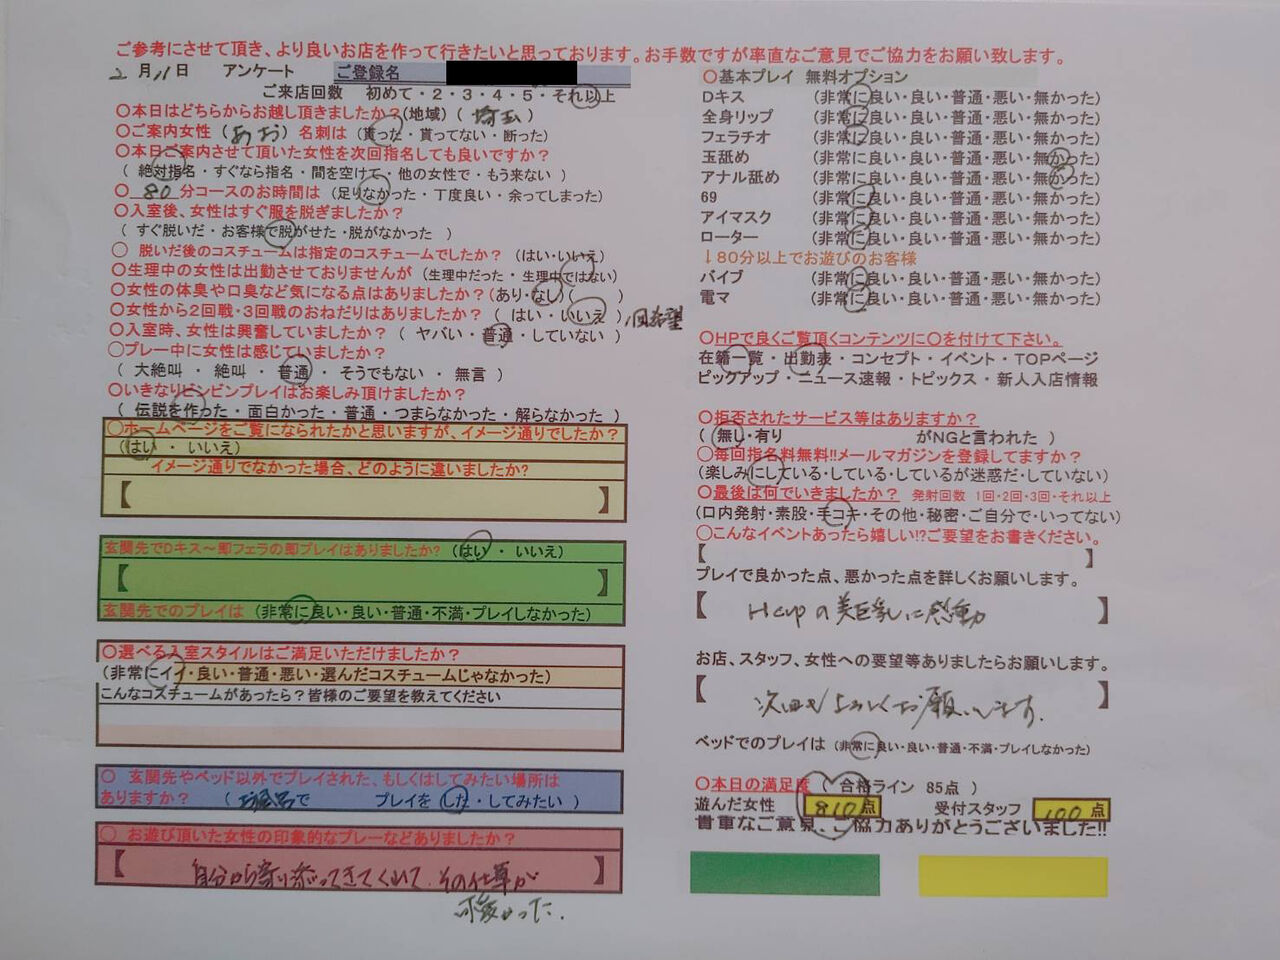 ご参考にさせて頂き、より良いお店を作って行きたいと思っております。お手数ですが率直なご意見でご協力をお願い致します。
2月11日 アンケート ご登録名
ご来店回数 初めて・2・3・4・5・それ以上
〇本日はどちらからお越し頂きましたか?(地域)( 埼玉 )
〇ご案内女性 ( あお ) 名刺は (貰った・貰ってない・断った)
〇本日ご案内させて頂いた女性を次回指名しても良いですか?
( 絶対指名・すぐなら指名・間を空けて・他の女性で・もう来ない )
〇 80 分コースのお時間は (足りなかった・丁度良い・余ってしまった)
〇入室後、女性はすぐ服を脱ぎましたか?
( すぐ脱いだ・お客様で脱がせた・脱がなかった )
〇 脱いだ後のコスチュームは指定のコスチュームでしたか? (はい・いいえ)
〇生理中の女性は出勤させておりませんが (生理中だった・ 生理中ではない)
〇女性の体臭や口臭など気になる点はありましたか?(あり・なし)( )
〇女性から2回戦・3回戦のおねだりはありましたか? ( はい・いいえ ) 1回希望
〇入室時、女性は興奮していましたか? ( ヤバい・普通・していない )
〇プレー中に女性は感じていましたか?
( 大絶叫 ・ 絶叫 ・ 普通 ・ そうでもない ・ 無言 )
〇いきなりビンビンプレイはお楽しみ頂けましたか?
( 伝説を作った・面白かった・普通・つまらなかった・解らなかった )
〇ホームページをご覧になられたかと思いますが、イメージ通りでしたか?
(はい ・ いいえ)
イメージ通りでなかった場合、どのように違いましたか?
【 】
玄関先でDキス～即フェラの即プレイはありましたか? (はい ・ いいえ)
【 】
玄関先でのプレイは (非常に良い・良い・普通・不満・プレイしなかった)
〇選べる入室スタイルはご満足いただけましたか?
(非常にイイ・良い・普通・悪い・選んだコスチュームじゃなかった)
こんなコスチュームがあったら?皆様のご要望を教えてください
〇 玄関先やベッド以外でプレイされた、もしくはしてみたい場所は
ありますか? ( で プレイを した・してみたい )
〇 お遊び頂いた女性の印象的なプレーなどありましたか?
【 自分から寄り添ってきてくれて、その仕草が 】
可愛かった.
〇基本プレイ 無料オプション
Dキス (非常に良い・良い・普通・悪い・無かった)
全身リップ (非常に良い・良い・普通・悪い・無かった)
フェラチオ (非常に良い・良い・普通・悪い・無かった)
玉舐め (非常に良い・良い・普通・悪い・無かった)
アナル舐め (非常に良い・良い・普通・悪い・無かった)
69 (非常に良い・良い・普通・悪い・無かった)
アイマスク (非常に良い・良い・普通・悪い・無かった)
ローター (非常に良い・良い・普通・悪い・無かった)
↓80分以上でお遊びのお客様
バイブ (非常に良い・良い・普通・悪い・無かった)
電マ (非常に良い・良い・普通・悪い・無かった)
〇HPで良くご覧頂くコンテンツに〇を付けて下さい。
在籍一覧・出勤表・コンセプト・イベント・TOPページ
ピックアップ・ニュース速報・トピックス・新人入店情報
〇拒否されたサービス等はありますか?
( 無し・有り がNGと言われた )
〇毎回指名料無料!!メールマガジンを登録してますか?
(楽しみにしている・している・しているが迷惑だ・していない)
〇最後は何でいきましたか? 発射回数 1回・2回・3回・それ以上
(口内発射・素股・手コキ・その他・秘密・ご自分で・いってない)
〇こんなイベントあったら嬉しい!?ご要望をお書きください。
【 】
プレイで良かった点、悪かった点を詳しくお願いします。
【 Hcupの美巨乳に感動 】
お店、スタッフ、女性への要望等ありましたらお願いします。
【 次回もよろしくお願いします. 】
ベッドでのプレイは (非常に良い・良い・普通・不満・プレイしなかった)
〇本日の満足度 ( 合格ライン 85点 )
遊んだ女性 810点 受付スタッフ 100点
貴重なご意見、ご協力ありがとうございました!!